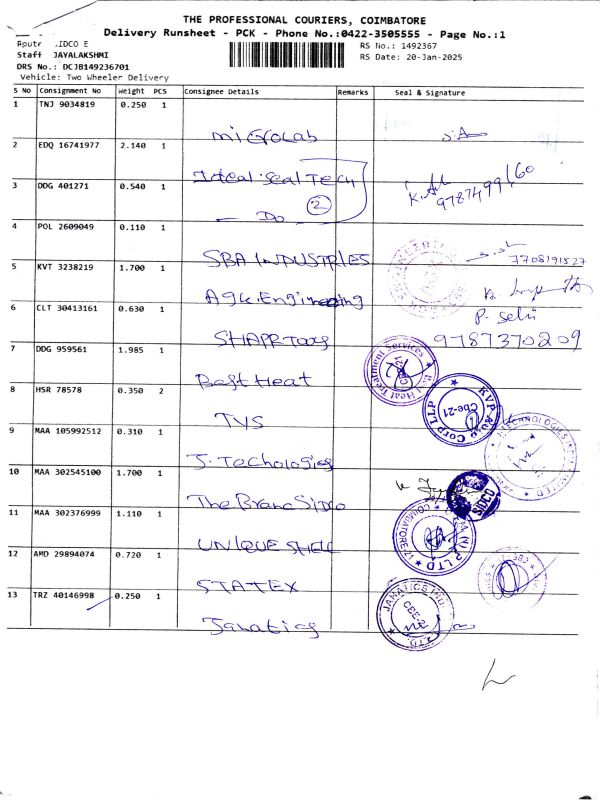 THE PROFESSIONAL COURIERS, COIMBATORE
Delivery Runsheet - PCK - Phone No.:0422-3505555 - Page No.:1
Route SIDCO E
RS No.: 1492367
Staff JAYALAKSHMI
RS Date: 20-Jan-2025
DRS No.: DCJB149236701
Vehicle: Two Wheeler Delivery
S No Consignment No Weight PCS Consignee Details Remarks Seal & Signature
1 TNJ 9034819 0.250 1
microlab
2 EDQ 16741977 2.140 1
Ideal Seal Tech
3 DDG 401271 0.540 1
— Do 2
9787499160
4 POL 2609049 0.110 1
SBA INDUSTRIES
7708191527
5 KVT 3238219 1.700 1
Agk.Engineering
6 CLT 30413161 0.630 1
P. Selvi
SHAPRTays
9787370209
7 DDG 959561 1.985 1
Best Heat
Heat Treatment Services
8 HSR 78578 0.350 2
TVS
KVP Auto Corp LLP
Cbe-21
9 MAA 105992512 0.310 1
J. Techologies
TECHNOLOGIES
10 MAA 302545100 1.700 1
The Brand Sidco
SIDCO
11 MAA 302376999 1.110 1
UNIQUE SHELL
(N) P LTD
12 AMD 29894074 0.720 1
STATEX
13 TRZ 40146998 0.250 1
Janatics
JANATICS IND. LTD.
CBE-21